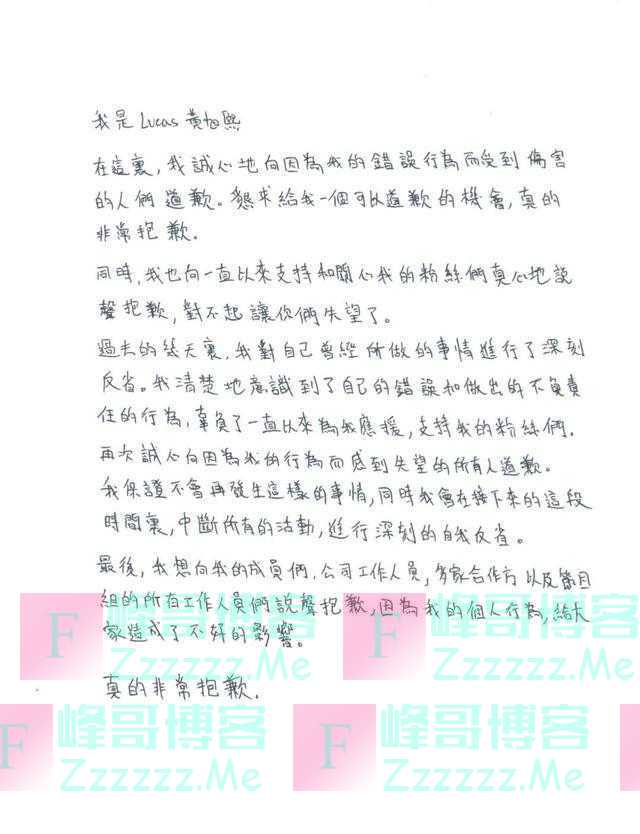 我是Lucas 黃旭熙
在這裏,我誠心地向因為我的錯誤行為而受到傷害
的人們道歉。懇求給我一個可以道歉的機會,真的
非常抱歉.
同時,我也向一直以來支持和關心我的粉絲們真心地説
聲抱歉,對不起讓你們失望了。
過去的幾天裏,我對自己曾經所做的事情進行了深刻
反省。我清楚地意識到了自己的錯誤和做出的不負責
任的行為,辜負了一直以來為我應援,支持我的粉絲們.
再次誠心向因為我的行為而感到失望的所有人道歉。
我保證不會再發生這樣的事情,同時我會在接下來的這段
時間裏,中斷所有的活動,進行深刻的自我反省。
最後,我想向我的成員們.公司工作人員,多家合作方以及節目
組的所有工作人員們説聲抱歉,因為我的個人行為,給大
家造成了不好的影響。
真的非常抱歉.
F 峰哥博客 Zzzzzz.Me F 峰哥博客 Zzzzzz.Me
峰哥博客 Zzzzzz.Me F 峰哥博客 Zzzzzz.Me F